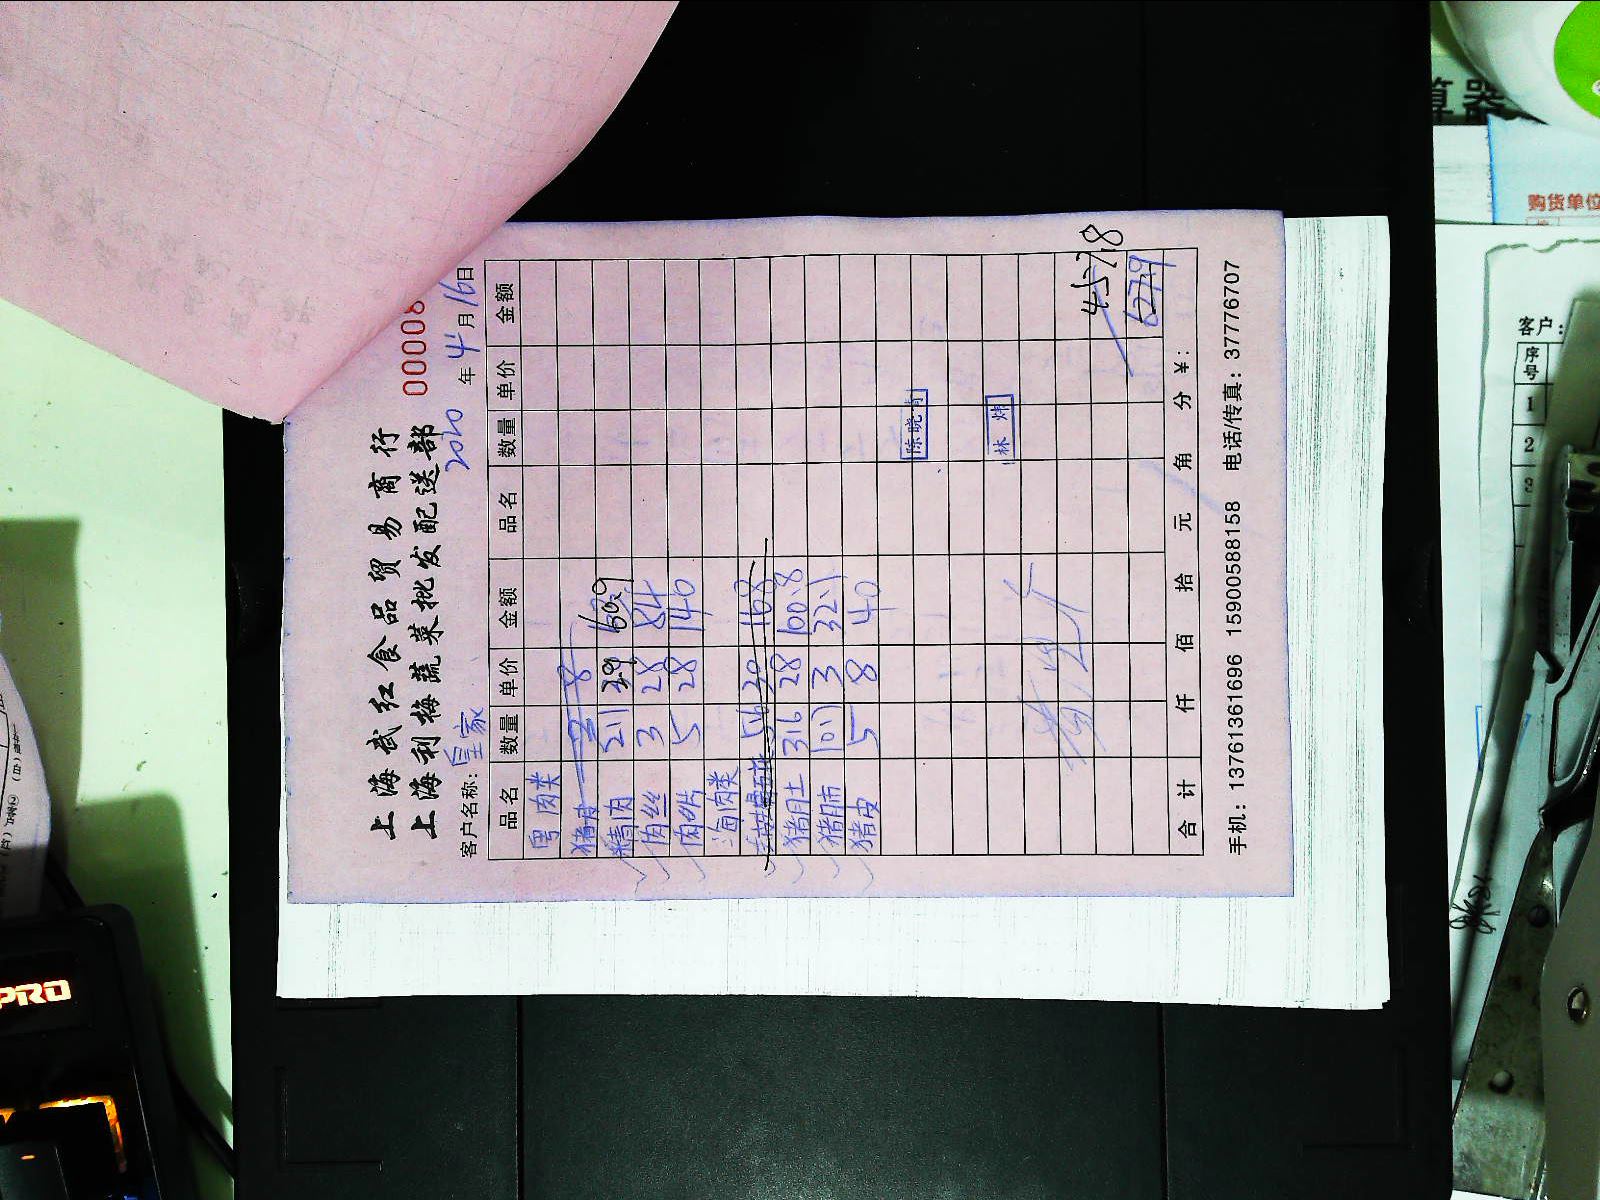 上海武红食品贸易商行
上海利梅蔬菜批发配送部
00008
客户名称: 皇家 2020 年 4 月 16 日
品名 数量 单价 金额 品名 数量 单价 金额
粤肉类
猪皮 8
精肉 211
肉丝 3 28 84
肉片 5 28 140
海肉类
30 168
猪肚 316 28 100.8
猪肺 3 32.1
猪皮 5 8 40
陈晓
林炜
457.8
627.9
合计 仟 佰 拾 元 角 分 ¥:
手机: 13761361696 15900588158 电话/传真: 37776707
PRO
算器
购货单位
客户:
序号
1
2
3